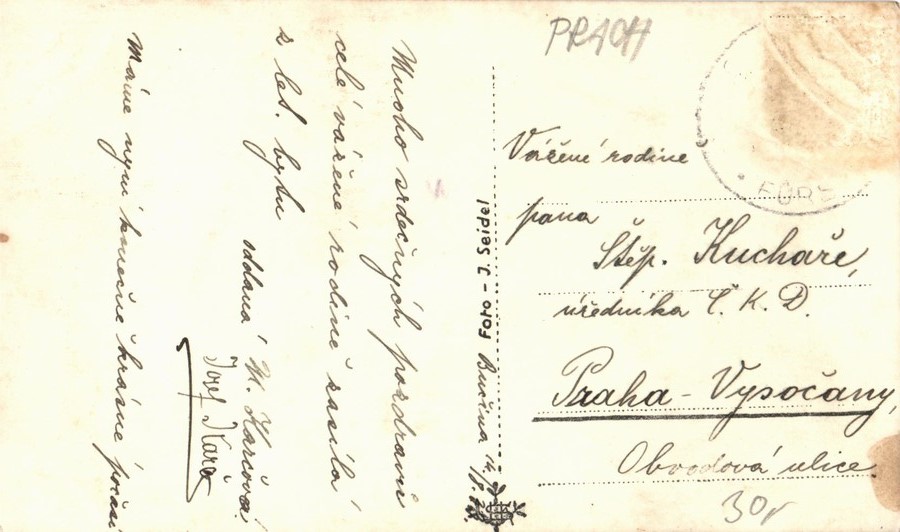 Mnoho srdečných pozdravů
celé vážené rodině zasílá
z let. bytu
oddaná M. Karešová
Josef Kareš
Máme nyní konečně krásné počasí
Foto - J. Seidel
Bučina
PRACH
FÜRS
Vážené rodině
pana
Štěp. Kuchaře,
úředníka Č. K. D.
Praha - Vysočany,
Obvodová ulice
30,-